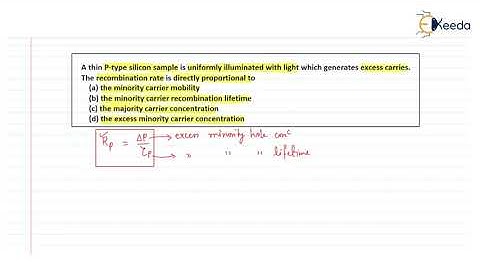 Ekeeda
A thin P-type silicon sample is uniformly illuminated with light which generates excess carries.
The recombination rate is directly proportional to
(a) the minority carrier mobility
(b) the minority carrier recombination lifetime
(c) the majority carrier concentration
(d) the excess minority carrier concentration
Rp = ΔP/τp → excess minority hole conc
→ " " " lifetime